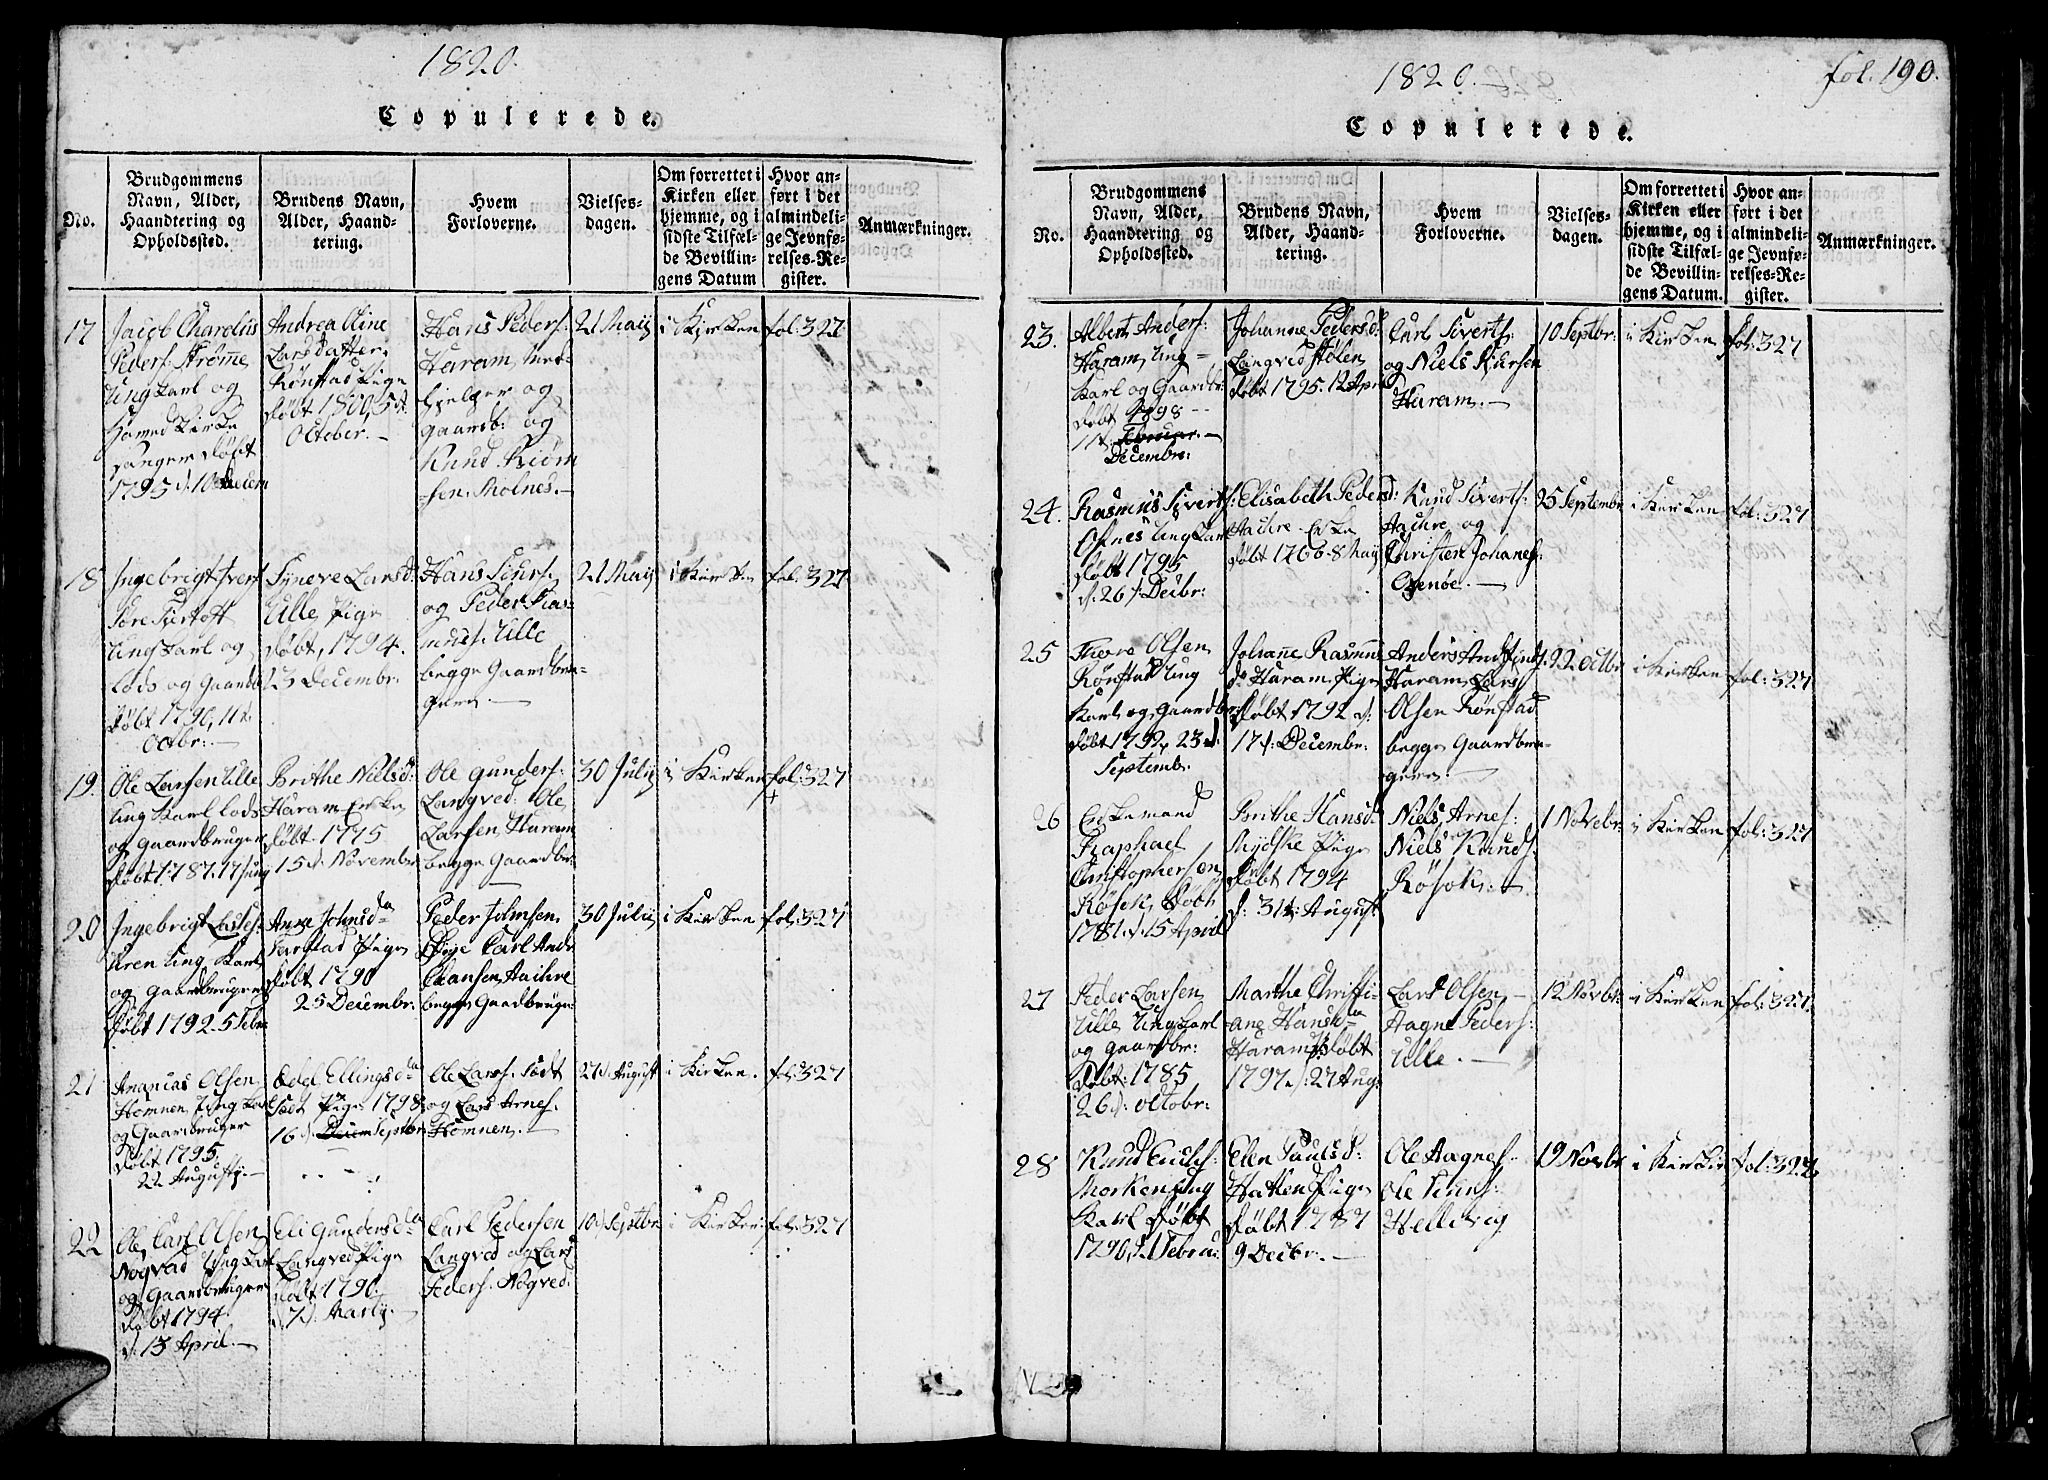 1820.
Copulerede.
No.
Brudgommens
Navn, Alder,
Haandtering og
Opholdssted.
Brudens Navn,
Alder, Haand-
tering.
Hvem
Forloverne.
Vielses-
dagen.
Om forrettet i
Kirken eller
hjemme, og i
sidste Tilfæl-
de Bevillin-
gens Datum
Hvor an-
ført i det
almindeli-
ge Jevnfø-
relses-Re-
gister.
Anmærkninger.
17
Jacob Charelius
Peders: Strøme
Ungkarl og
Kirke
sanger døbt
1795 d. 10 Decem
Andrea Oline
Larsdatter
Rønstad Pige
døbt 1800
October.
Hans Peders:
Haram, Med-
hjelper og
Gaardb: og
Knud
sen. Molnes.
21 Maij
i Kirken
fol: 327
18
Ingebrigt Ivers
Ungkarl og
Lods og Gaardb
døbt 1790, 11 d.
Octbr:
Syneve Larsd.
Ulle Pige
døbt, 1794.
13 Decembr.
Hans
og Peder Ras-
muss. Ulle
begge Gaardbru-
gere.
21 Maij
i Kirken
fol: 327
19.
Ole Larsen Ulle
Ung Karl Lods
og Gaardbruger
døbt 1787. 17 Juny
Brithe Nielsd.
Haram Enke
døbt 1775
15 d. November
Ole Gunders:
Langved: Ole
Larsen, Haram
begge Gaardbr:
30 July
i Kirken
fol: 327
20
Ingebrigt
Uren Ung Karl
og Gaardbruger
døbt 1792 5 Febr
Anne Johnsda
Farstad Pige
døbt 1790
25 Decembr:
Peder Johnsen,
Carl Andr
begge Gaardbruger
30 Julij
i Kirken
fol: 327
21
Ananias Olsen
Hemnen, Ung Karl
og Gaardbruger
døbt 1795.
22 Augusty.
Edel Ellingsda
Pige 1798
16 d. Septbr
Ole Lars:
og Lars Arnes.
Hemnen.
27 d. August
i Kirken.
fol: 327
22
Ole Carl Olsen
Nogvad Ung Karl
og Gaardbruger
Døbt 1794.
d. 13 April.
Eli Gundersda
Langved Pige
døbt 1790.
d. 7 d. Marty.
Carl Pedersen
Langved og Lars
Peders. Nogved.
10 d Septbr
i Kirken
fol: 327
1820.
fol. 190.
Copulerede.
No.
Brudgommens
Navn, Alder,
Haandtering og
Opholdssted.
Brudens Navn,
Alder, Haand-
tering.
Hvem
Forloverne.
Vielses-
dagen.
Om forrettet i
Kirken eller
hjemme, og i
sidste Tilfæl-
de Bevillin-
gens Datum.
Hvor an-
ført i det
almindeli-
ge Jevnfø-
relses-Re-
gister.
Anmærkninger.
23.
Albert Anders:
Haram, Ung-
karl og Gaardbr:
døbt 1798
11 d. Februar.
Decembr:
Johanne Pedersd:
Langved
døbt 1795. 12 Apr
Carl Siverts:
og Niels
Haram.
10 Septbr:
i Kirken
fol: 327
24.
Rasmus Siverts:
Ung Karl
døbt 1795
d. 26 d. Decbr:
Elisabeth Pedersd:
Enke
døbt 1766 8 Maij
Knud Siverts:
og
Christen Johanes:
25 Septembr
i Kirken
fol: 327
25
Olsen
Rønstad Ung
Karl og Gaardbr:
døbt 1792, 23 d.
Septemb.
Johane Rasmus
da Haram, Pige
døbt 1792 d.
17 d. Decembr:
Anders
Haram, Lars
Olsen Rønstad
begge Gaardbru-
gere.
22 Octbr
i Kirken
fol: 327
26
Enkemand
Raphael
Christophersen,
Røsok, Døbt
1781. d. 15 April
Brithe Hansd.
Pige
døbt 1794
d: 31 d: August
Niels Arnes:
Niels Knuds.
Røsok:
1 Novebr:
i Kirken
fol: 327
27
Peder Larsen
Ulle Ungkarl
og Gaardbr:
Døbt: 1785
26 d. Octobr:
Marthe Christi-
ane Hansda
Haram døbt
1797 d: 27 Aug:
Lars Olsen,
Aagne Peders:
Ulle.
12 Novbr:
i Kirken
fol: 327.
28
Knud
Morken Ung
Karl døbt
1790, d. 1 Februa:
Ellen Paulsd:
Hatlen Pige
døbt 1787
9 Decbr:
Ole Aagnes.
Ole
Hellevig
19 Novbr
i Kirken
fol: 327